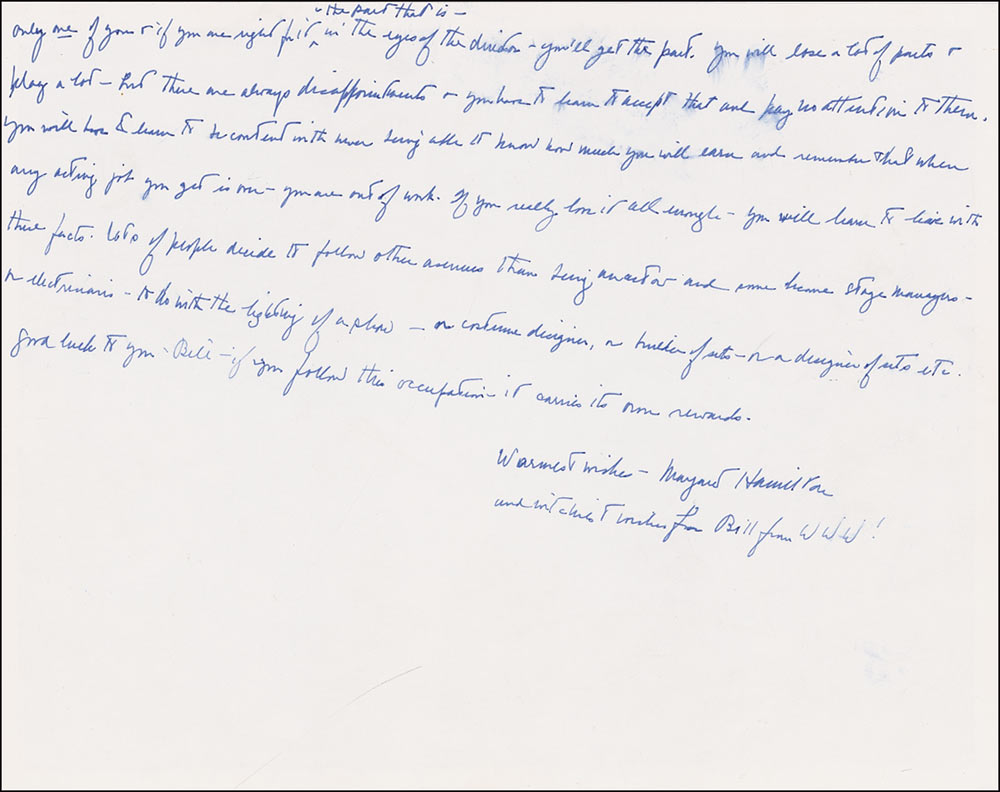 - the part that is -
only one of you & if you are right for it, in the eyes of the director - you'll get the part. You will lose a lot of parts &
play a lot - but there are always disappointments & you have to learn to accept that and pay no attention to them.
You will have to learn to be content with never being able to know how much you will earn and remember that when
any acting job you get is over - you are out of work. If you really love it all enough - you will learn to live with
these facts. Lots of people decide to follow other avenues than being an actor and some become stage managers -
or electricians - to do with the lighting of a show - or costume designer, or builder of sets - or a designer of sets etc.
Good luck to you - Bill - if you follow this occupation it carries its own rewards.
Warmest wishes - Margaret Hamilton
and witchiest wishes for Bill from WWW!